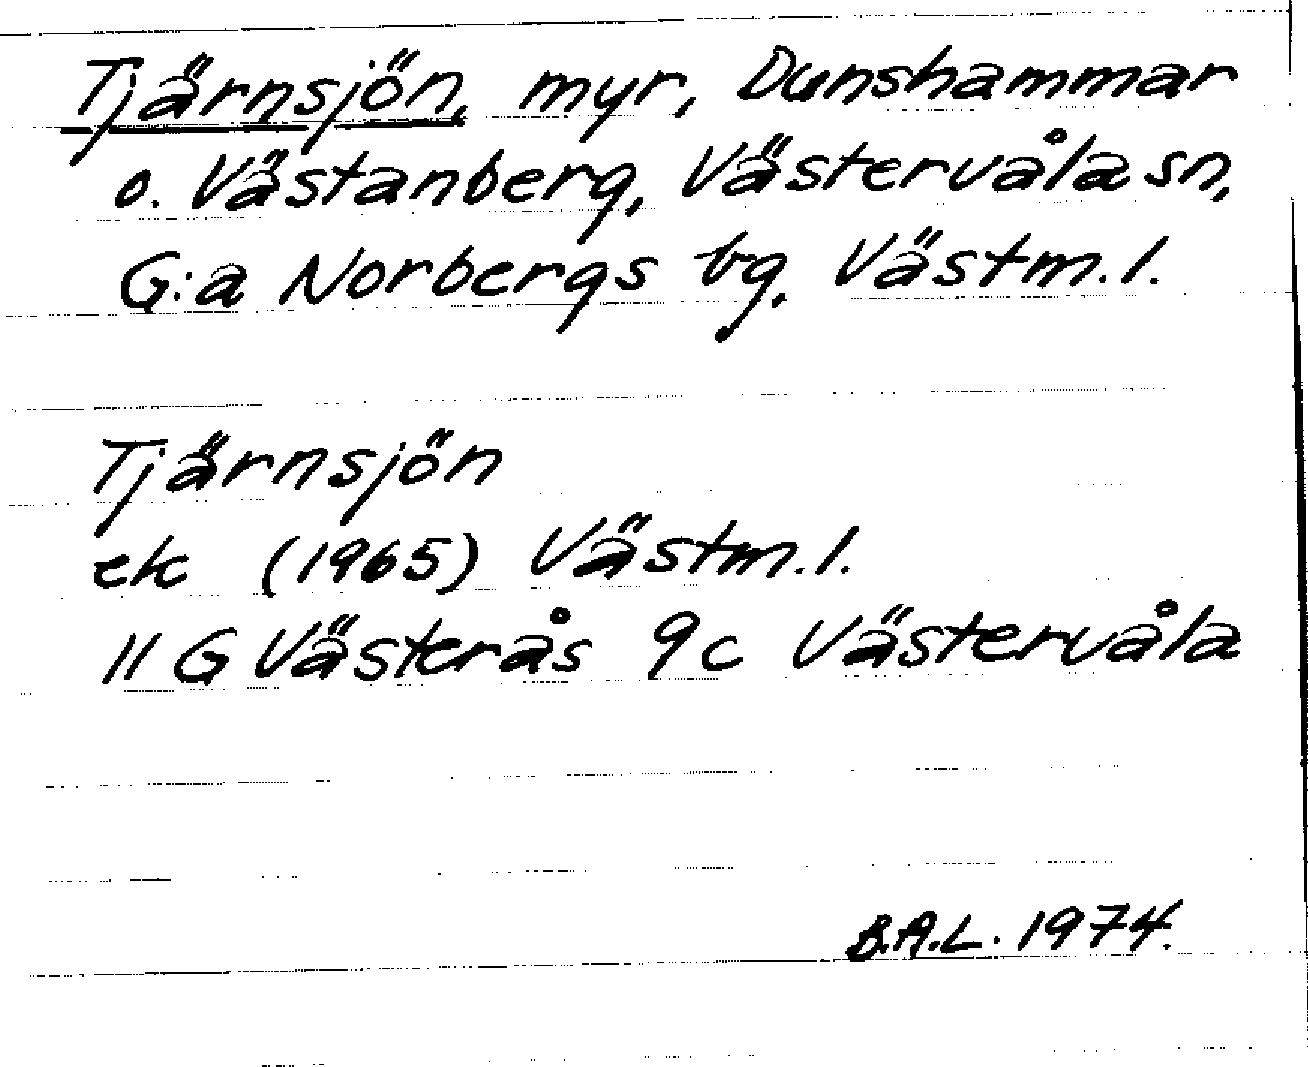 Tjärnsjön, myr, Dunshammar
o. Västanberg, Västervåla sn,
G:a Norbergs bg, Västm.l.
Tjärnsjön
ek (1965) Västm.l.
11 G Västerås 9c Västervåla
B.A.L. 1974.